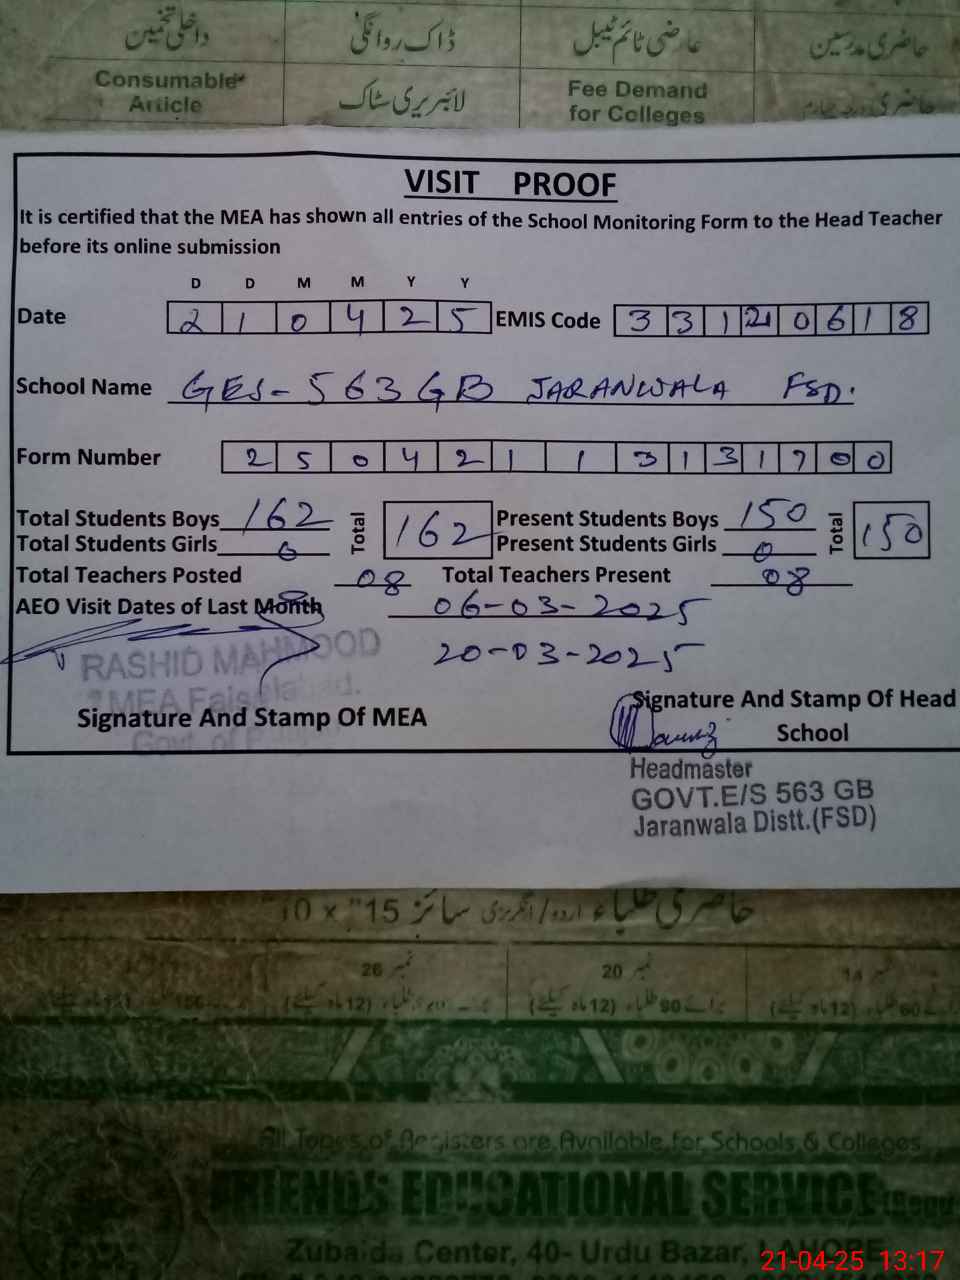 داخلی تخمین
ڈاک روانگی
عارضی ٹائم ٹیبل
حاضری مدرسین
Consumable Article
لائبریری سٹاک
Fee Demand for Colleges
VISIT PROOF
It is certified that the MEA has shown all entries of the School Monitoring Form to the Head Teacher
before its online submission
D D M M Y Y
Date 2 1 0 4 2 5 EMIS Code 3 3 1 2 0 6 1 8
School Name GES-563 GB JARANWALA FSD.
Form Number 2 5 0 4 2 1 1 3 1 3 1 7 0 0
Total Students Boys 162 Total 162 Present Students Boys 150 Total 150
Total Students Girls 0 Present Students Girls 0
Total Teachers Posted 08 Total Teachers Present 08
AEO Visit Dates of Last Month 06-03-2025
20-03-2025
RASHID MAHMOOD
MEA Faisalabad.
Govt. of
Signature And Stamp Of MEA
Signature And Stamp Of Head
School
Headmaster
GOVT.E/S 563 GB
Jaranwala Distt.(FSD)
حاضری طلباء اردو/انگریزی سائز 15" x "10
نمبر 26
نمبر 20
نمبر 14
All Types of Registers are Available for Schools & Colleges
FRIENDS EDUCATIONAL SERVICE
Zubaida Center, 40- Urdu Bazar, LAHORE
21-04-25 13:17